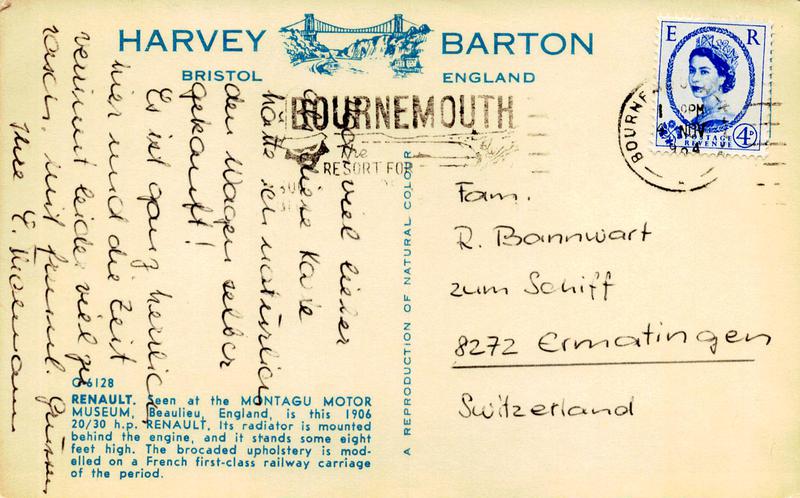 HARVEY BARTON
BRISTOL ENGLAND
E R
POSTAGE
REVENUE
4D
BOURNEMOUTH
the
RESORT FOR
BOURNE
6PM
NOV
viel lieber
diese Karte
hätte ich natürlich
den Wagen selber
gekauft!
Es ist ganz herrlich
hier und die Zeit
verrinnt leider viel zu
rasch. Mit freundl. Grüssen
Ihre E.
Fam.
R. Bannwart
zum Schiff
8272 Ermatingen
Switzerland
A REPRODUCTION OF NATURAL COLOUR
G 6128
RENAULT. Seen at the MONTAGU MOTOR
MUSEUM, Beaulieu, England, is this 1906
20/30 h.p. RENAULT. Its radiator is mounted
behind the engine, and it stands some eight
feet high. The brocaded upholstery is mod-
elled on a French first-class railway carriage
of the period.